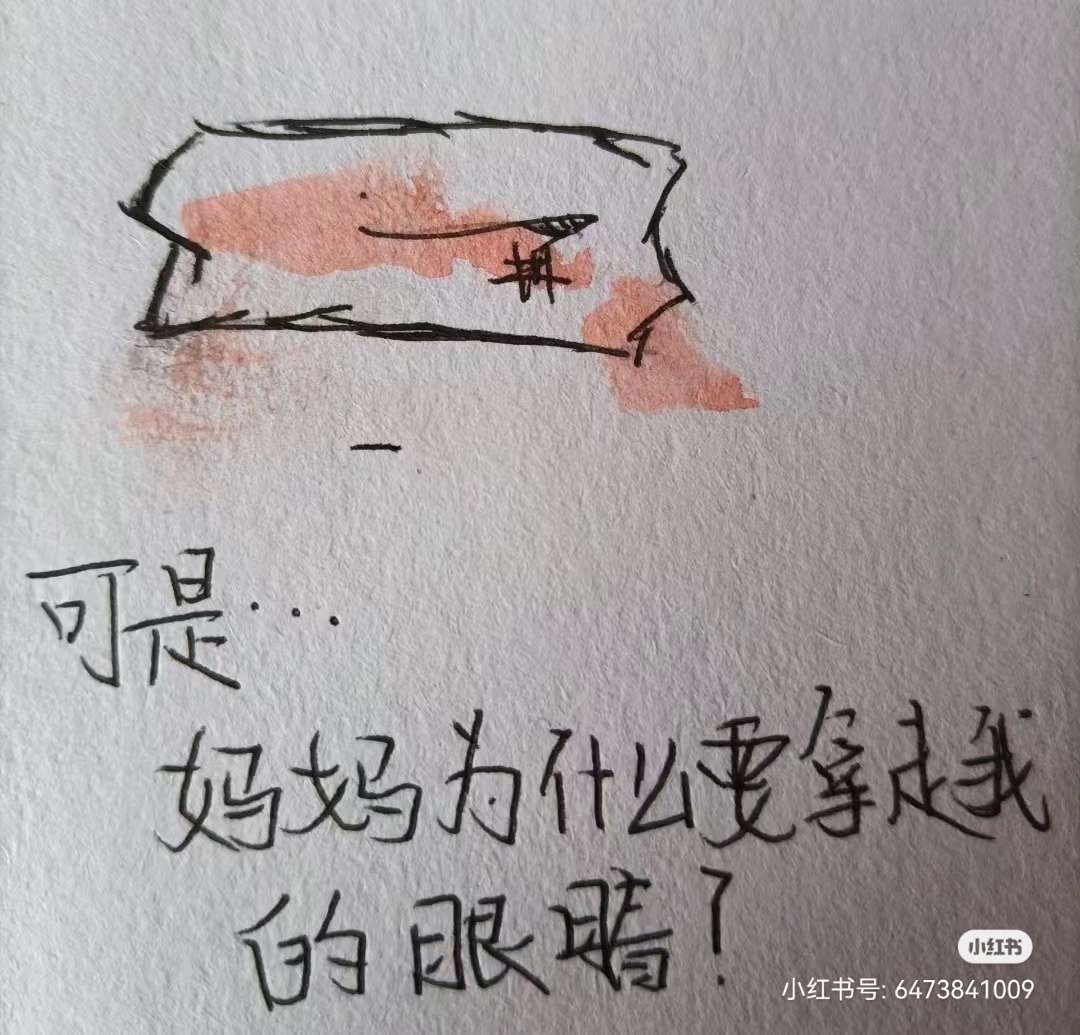 可是...
妈妈为什么要拿走我
的眼睛?
小红书
小红书号: 6473841009